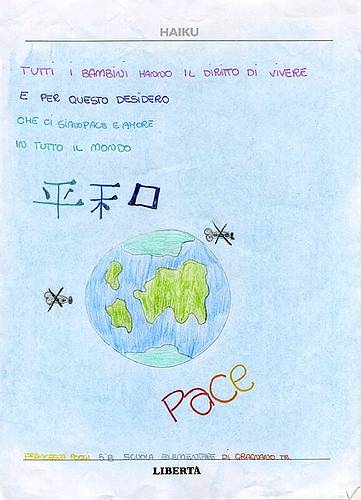 HAIKU
TUTTI I BAMBINI HANNO IL DIRITTO DI VIVERE
E PER QUESTO DESIDERO
CHE CI SIANO PACE E AMORE
IN TUTTO IL MONDO
平和
PACE
FRANCESCA POGGI 5 B SCUOLA ELEMENTARE DI GRAGNANO TR.
LIBERTÀ